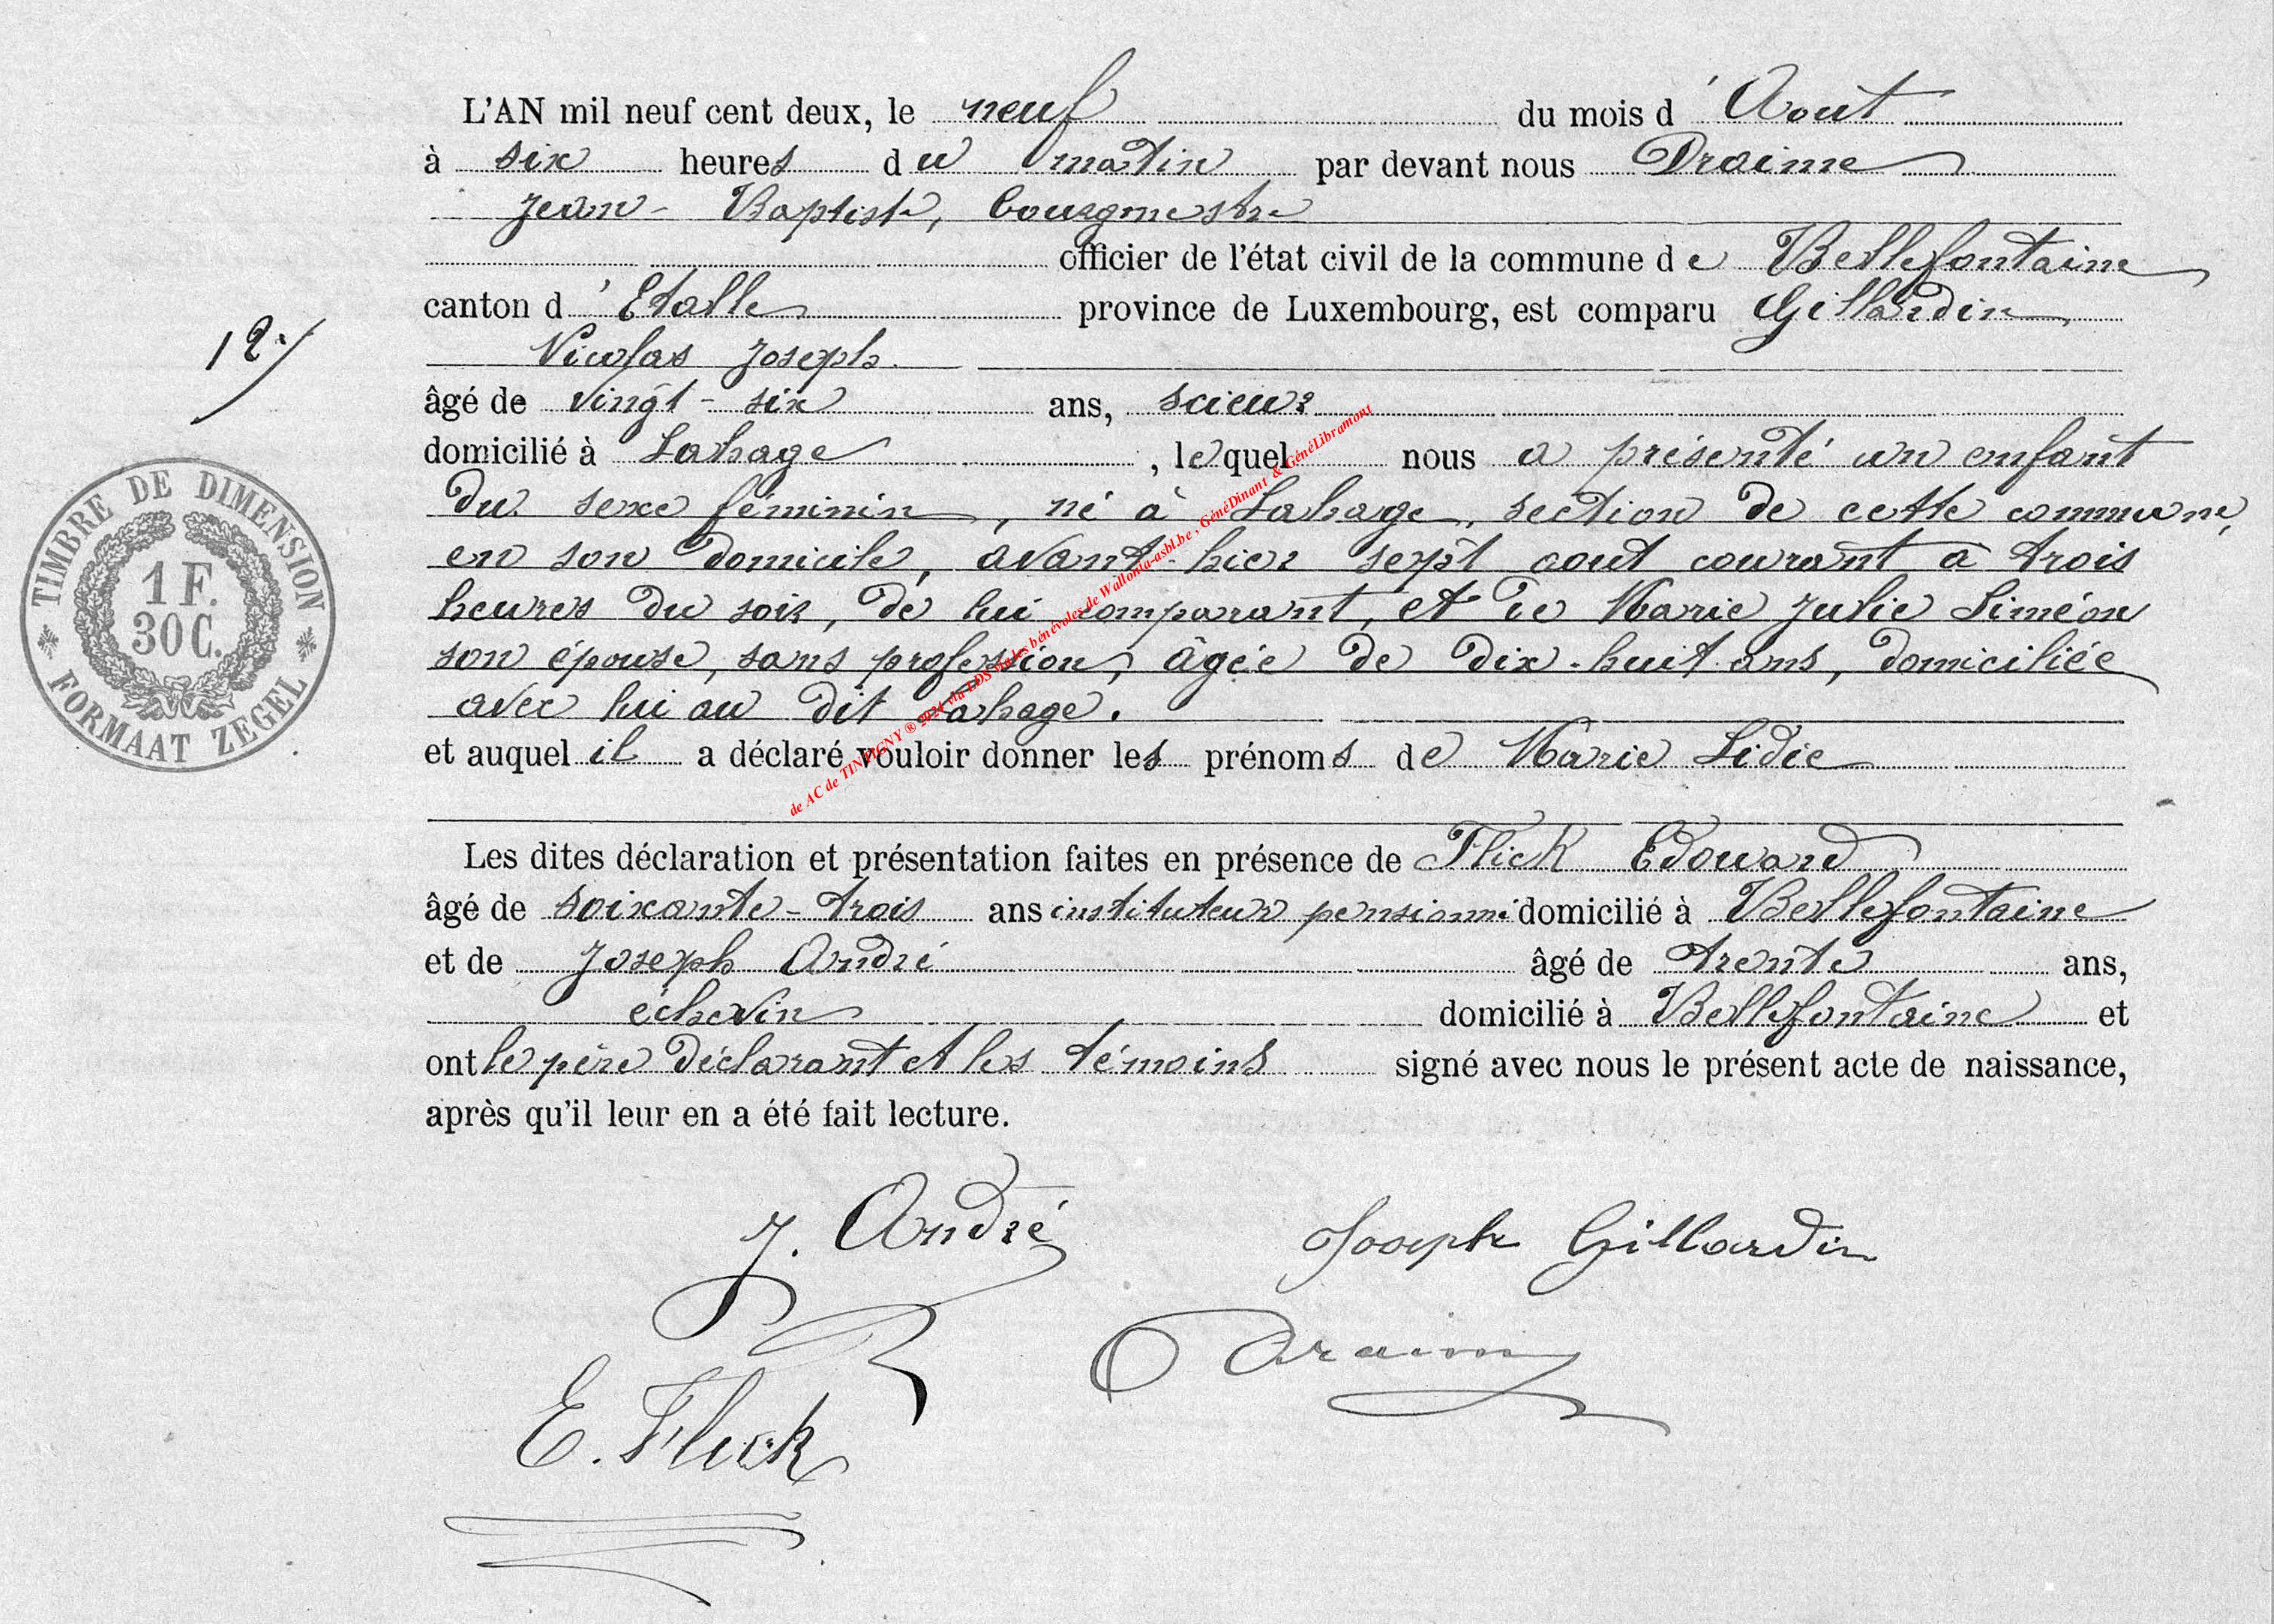 L'AN mil neuf cent deux, le neuf du mois d'Aout
à six heures du matin par devant nous Draime
Jean-Baptiste, bourgmestre
officier de l'état civil de la commune de Bellefontaine
canton d'Etalle province de Luxembourg, est comparu Gillardin
Nicolas Joseph.
âgé de vingt-six ans, scieur
domicilié à Lahage, lequel nous a présenté un enfant
du sexe féminin, né à Lahage, section de cette commune,
en son domicile, avant-hier sept aout courant à trois
heures du soir, de lui comparant, et de Marie Julie Siméon
son épouse, sans profession, âgée de dix-huit ans, domiciliée
avec lui au dit Lahage.
et auquel il a déclaré vouloir donner les prénoms de Marie Lidie
Les dites déclaration et présentation faites en présence de Flick Edouard
âgé de soixante-trois ans instituteur pensionné domicilié à Bellefontaine
et de Joseph André âgé de trente ans,
échevin domicilié à Bellefontaine et
ont le père déclarant et les témoins signé avec nous le présent acte de naissance,
après qu'il leur en a été fait lecture.
12
TIMBRE DE DIMENSION
1 F.
30 C.
FORMAAT ZEGEL
de AC de TINTIGNY ® 2024 via LDS via les bénévoles de Wallonia-asbl.be, GénéDinant & GénéLibramont
J. André
Joseph Gillardin
Draime
E. Flick